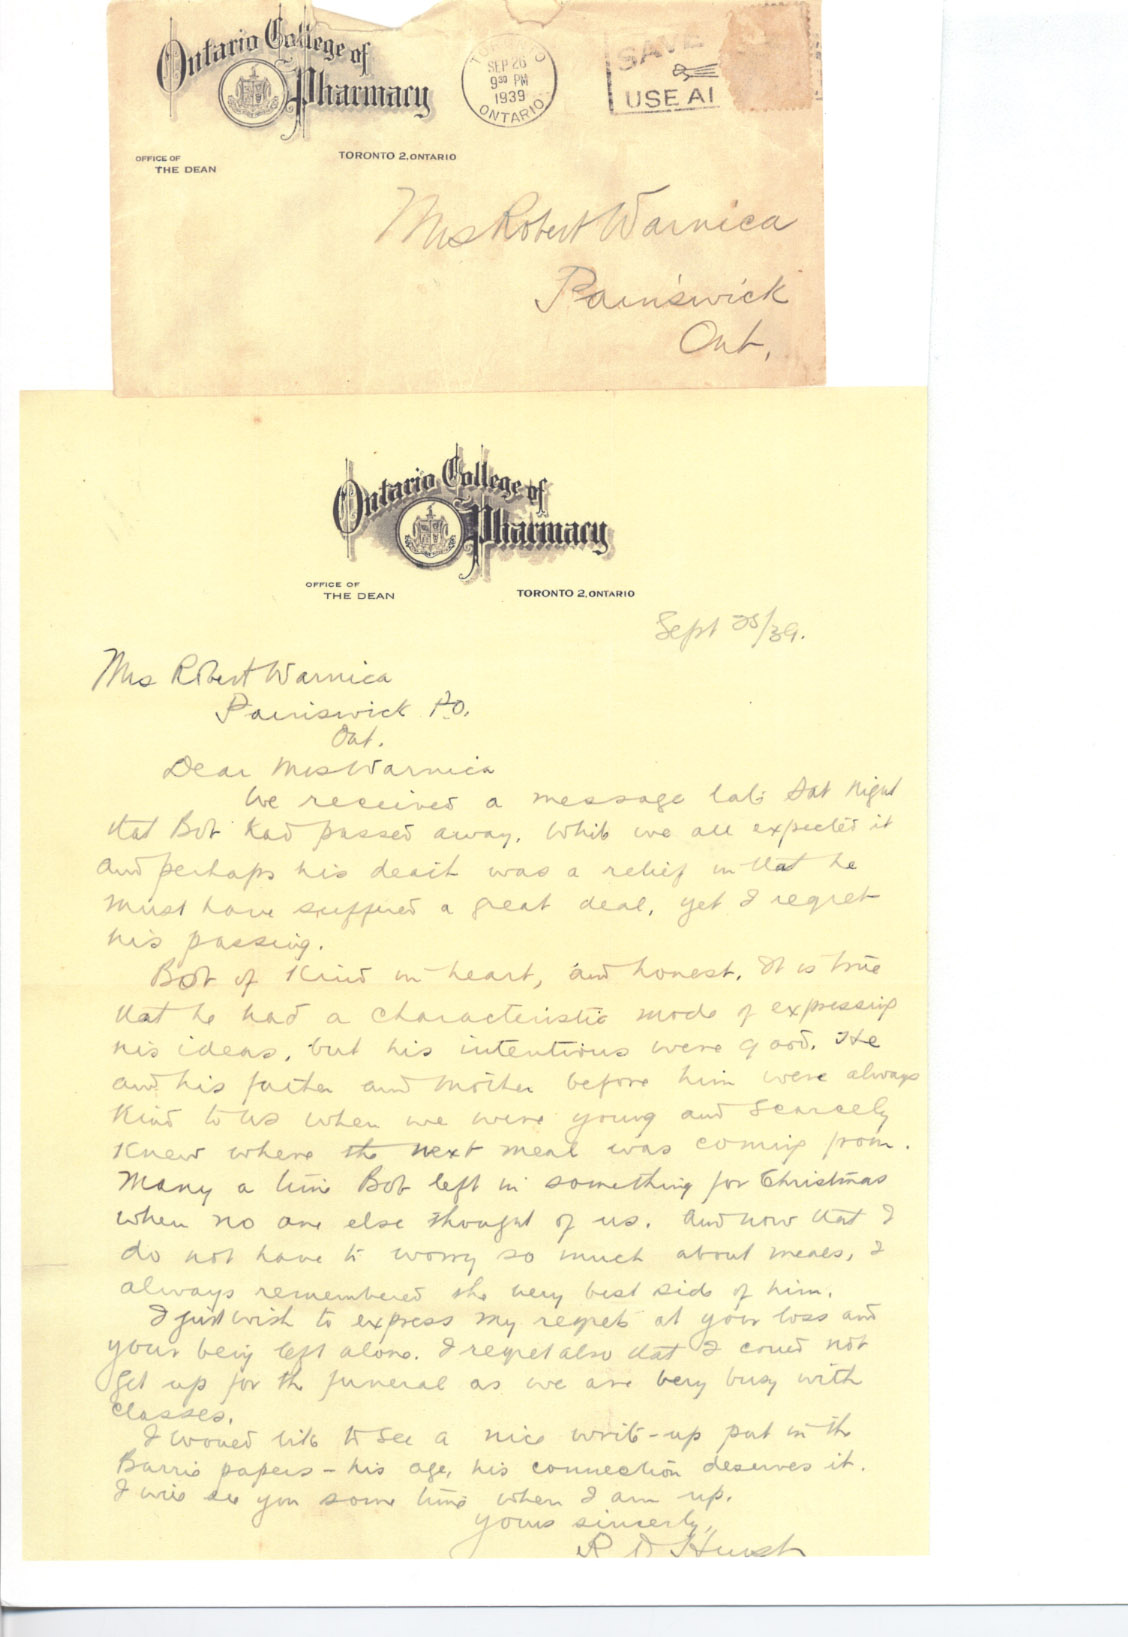 Ontario College of
Pharmacy
OFFICE OF
THE DEAN
TORONTO 2, ONTARIO
TORONTO
SEP 26
9 30 PM
1939
ONTARIO
SAVE
USE AI
Mrs Robert Warnica
Painswick
Ont.
Ontario College of
Pharmacy
OFFICE OF
THE DEAN
TORONTO 2, ONTARIO
Sept 25/39.
Mrs Robert Warnica
Painswick P.O.
Ont.
Dear Mrs Warnica
We received a message late Sat night
that Bob had passed away. While we all expected it
and perhaps his death was a relief in that he
must have suffered a great deal, yet I regret
his passing.
Bob of kind in heart, and honest. It is true
that he had a characteristic mode of expressing
his ideas, but his intentions were good. He
and his father and mother before him were always
kind to us when we were young and scarcely
knew where the next meal was coming from.
Many a time Bob left in something for Christmas
when no one else thought of us. And now that I
do not have to worry so much about meals, I
always remembered the very best side of him.
I just wish to express my regrets at your loss and
your being left alone. I regret also that I could not
get up for the funeral as we are very busy with
classes.
I would like to see a nice write-up put in the
Barrie papers - his age, his connection deserves it.
I will see you some time when I am up.
yours sincerely,
R O Hurst